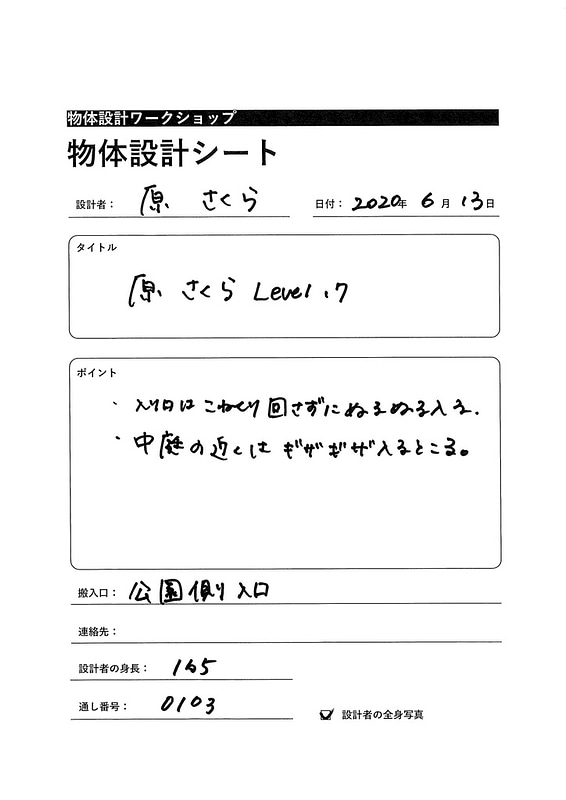 物体設計ワークショップ
物体設計シート
設計者： 原 さくら 日付： 2020年 6月 13日
タイトル
原 さくら Level 17
ポイント
・入り口は 回さずに ぬるぬる入る.
・中庭の近くは ギザギザ入るところ。
搬入口： 公園側入口
連絡先：
設計者の身長： 165
通し番号： 0103
☑ 設計者の全身写真